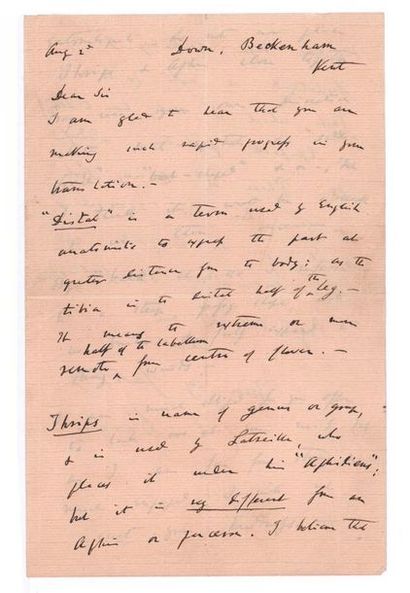 Aug 2d Down, Beckenham
Kent
Dear Sir
I am glad to hear that you are
making such rapid progress in your
translation. —
"Distal" is a term used by English
anatomists to express the part at
greater distance from the body: as the
tibia is the distal half of the leg. —
It means the extreme or more
half of the labellum
remote ^ from centre of flower. —
Thrips is name of genus or group,
& is used by Latreille, who
places it under his "Aphidiens";
but it is very different from an
Aphis or puceron. I believe the